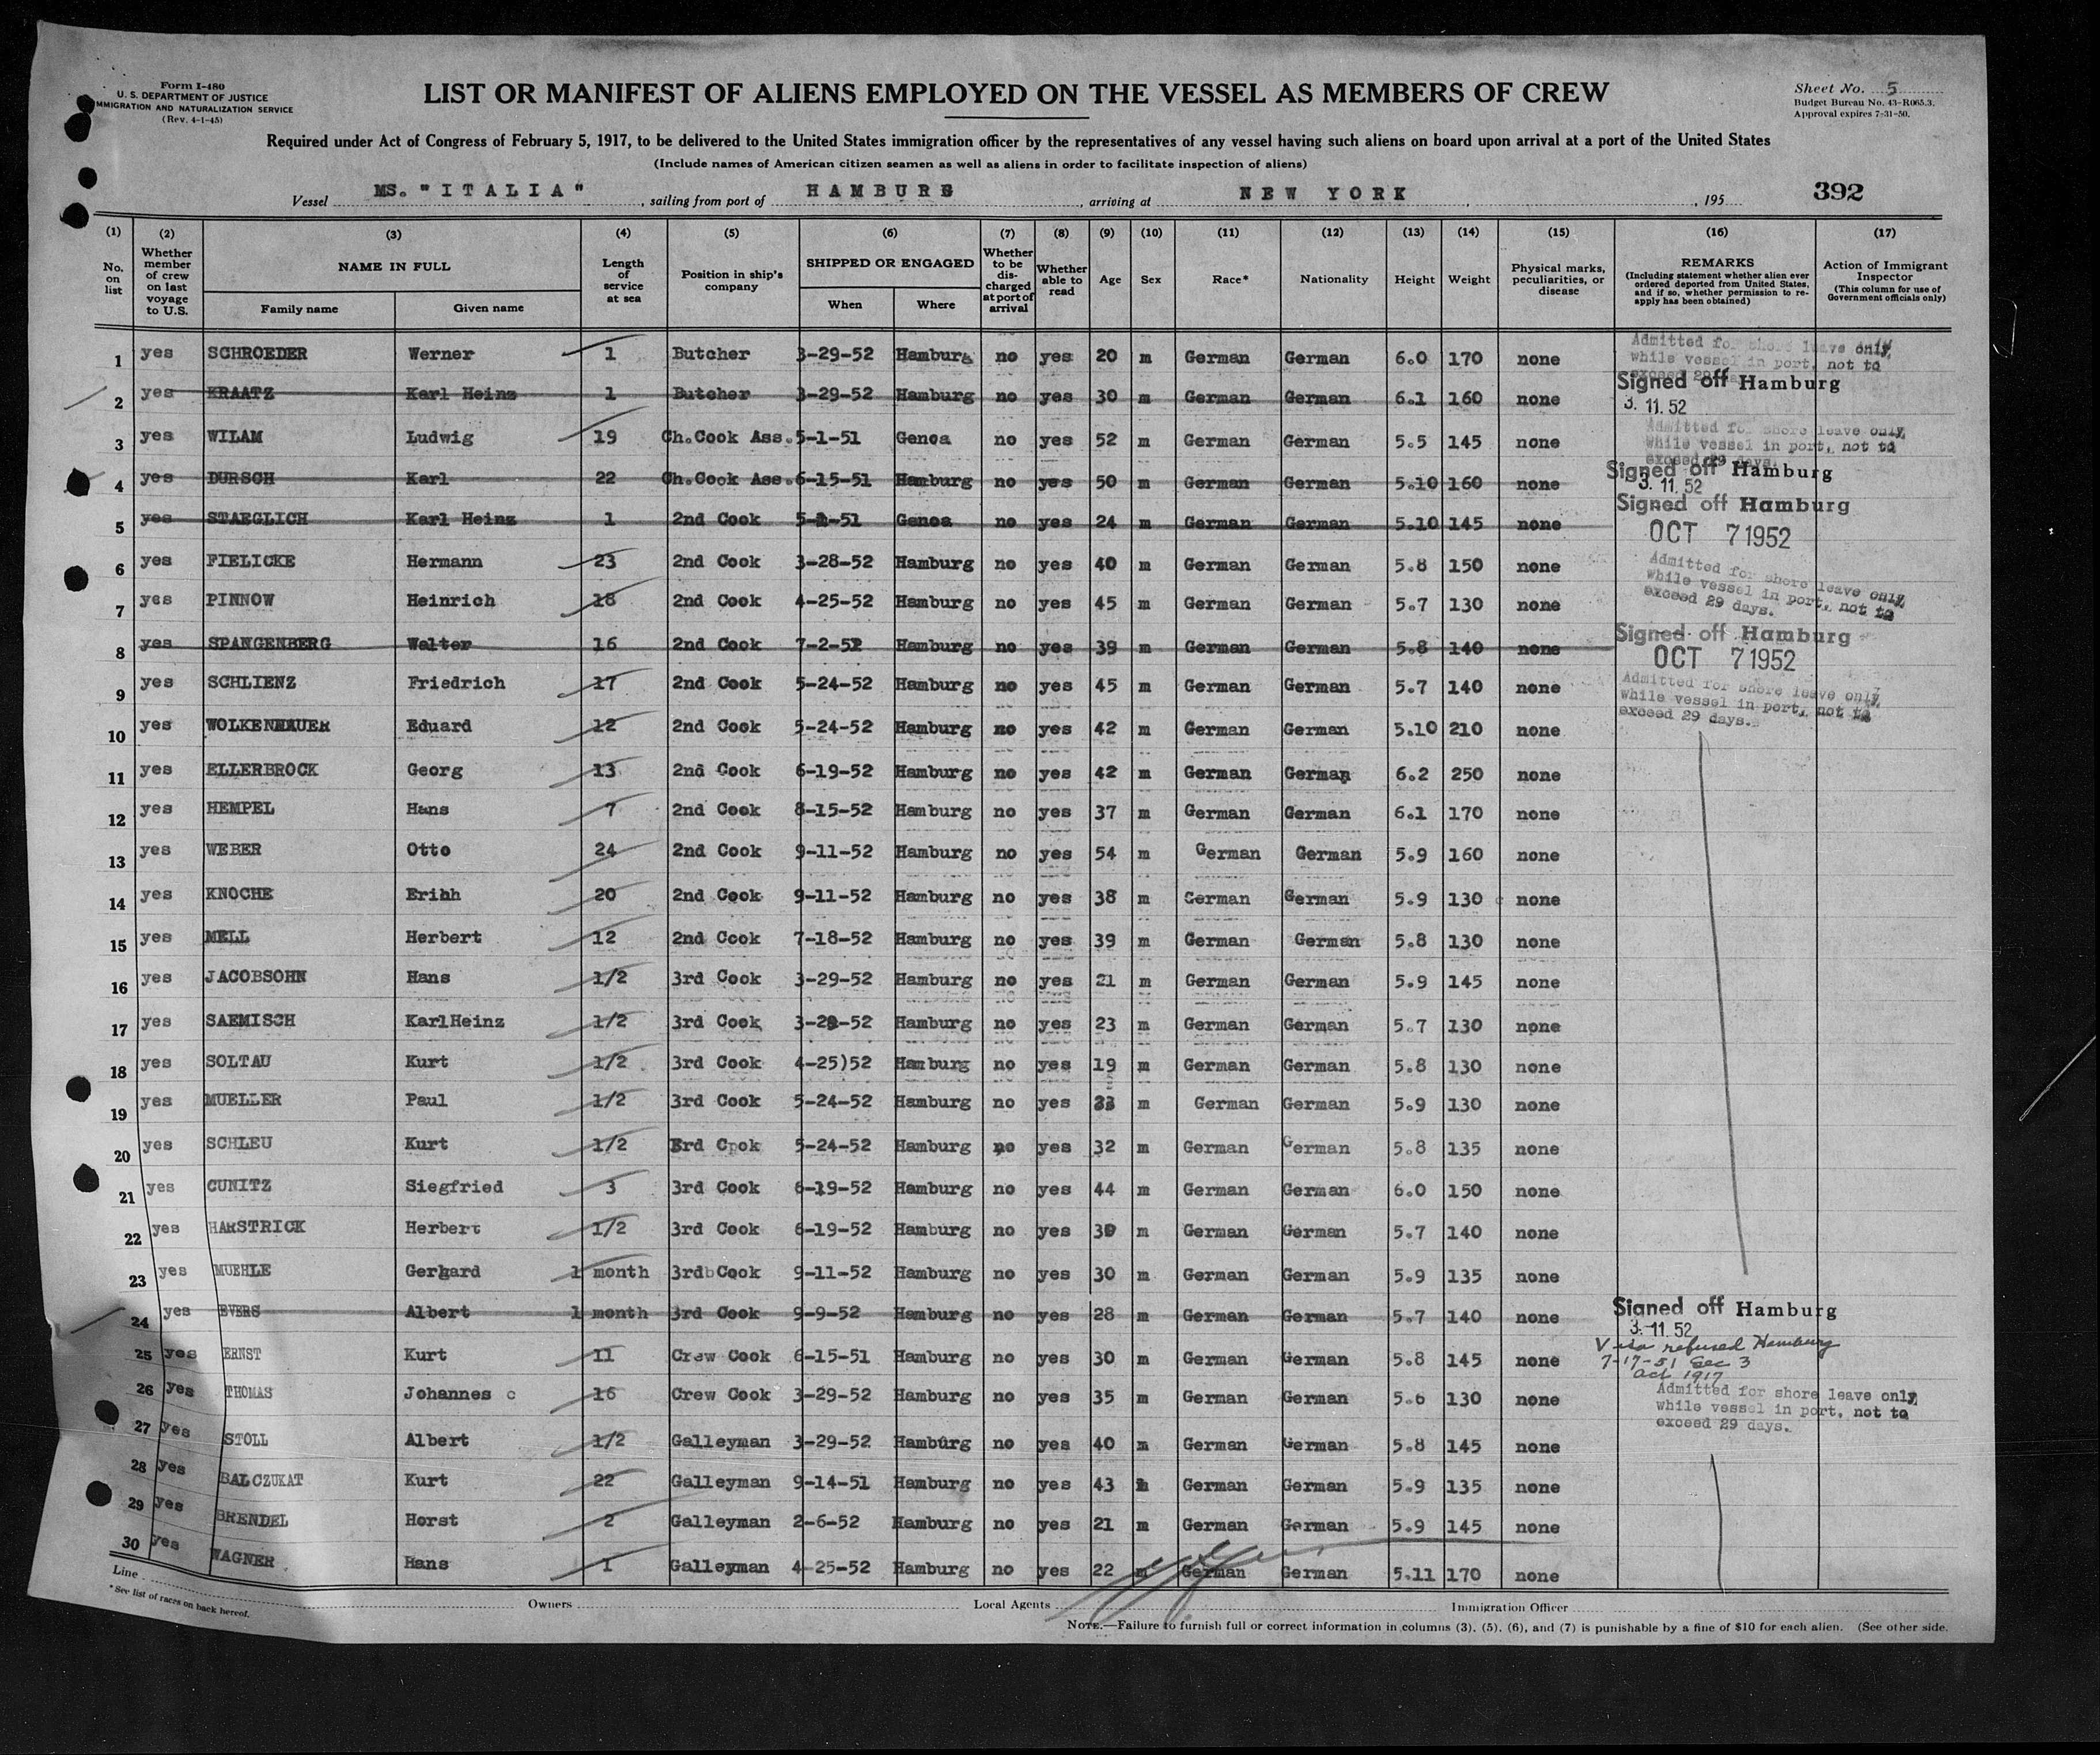 Form I-480
U. S. DEPARTMENT OF JUSTICE
IMMIGRATION AND NATURALIZATION SERVICE
(Rev. 4-1-45)
LIST OR MANIFEST OF ALIENS EMPLOYED ON THE VESSEL AS MEMBERS OF CREW
Sheet No. 5
Budget Bureau No. 43-R065.3.
Approval expires 7-31-50.
Required under Act of Congress of February 5, 1917, to be delivered to the United States immigration officer by the representatives of any vessel having such aliens on board upon arrival at a port of the United States
(Include names of American citizen seamen as well as aliens in order to facilitate inspection of aliens)
Vessel MS. "ITALIA", sailing from port of HAMBURG, arriving at NEW YORK, 195 392
(1) No. on list (2) Whether member of crew on last voyage to U.S. (3) NAME IN FULL Family name Given name (4) Length of service at sea (5) Position in ship's company (6) SHIPPED OR ENGAGED When Where (7) Whether to be discharged at port of arrival (8) Whether able to read (9) Age (10) Sex (11) Race* (12) Nationality (13) Height (14) Weight (15) Physical marks, peculiarities, or disease (16) REMARKS (Including statement whether alien ever ordered deported from United States, and if so, whether permission to re-apply has been obtained) (17) Action of Immigrant Inspector (This column for use of Government officials only)
1 yes SCHROEDER Werner 1 Butcher 3-29-52 Hamburg no yes 20 m German German 6.0 170 none Admitted for shore leave only, while vessel in port, not to exceed 29 days.
2 yes KRAATZ Karl Heinz 1 Butcher 3-29-52 Hamburg no yes 30 m German German 6.1 160 none Signed off Hamburg 3. 11. 52
3 yes WILAM Ludwig 19 Ch.Cook Ass. 5-1-51 Genoa no yes 52 m German German 5.5 145 none Admitted for shore leave only, while vessel in port, not to exceed 29 days.
4 yes DURSCH Karl 22 Ch.Cook Ass. 6-15-51 Hamburg no yes 50 m German German 5.10 160 none Signed off Hamburg 3. 11. 52
5 yes STAEGLICH Karl Heinz 1 2nd Cook 5-1-51 Genoa no yes 24 m German German 5.10 145 none Signed off Hamburg OCT 7 1952
6 yes FIELICKE Hermann 23 2nd Cook 3-28-52 Hamburg no yes 40 m German German 5.8 150 none Admitted for shore leave only, while vessel in port, not to exceed 29 days.
7 yes PINNOW Heinrich 18 2nd Cook 4-25-52 Hamburg no yes 45 m German German 5.7 130 none
8 yes SPANGENBERG Walter 16 2nd Cook 7-2-52 Hamburg no yes 39 m German German 5.8 140 none Signed off Hamburg OCT 7 1952
9 yes SCHLIENZ Friedrich 17 2nd Cook 5-24-52 Hamburg no yes 45 m German German 5.7 140 none Admitted for shore leave only, while vessel in port, not to exceed 29 days.
10 yes WOLKENHAUER Eduard 12 2nd Cook 5-24-52 Hamburg no yes 42 m German German 5.10 210 none
11 yes ELLERBROCK Georg 13 2nd Cook 6-19-52 Hamburg no yes 42 m German German 6.2 250 none
12 yes HEMPEL Hans 7 2nd Cook 8-15-52 Hamburg no yes 37 m German German 6.1 170 none
13 yes WEBER Otto 24 2nd Cook 9-11-52 Hamburg no yes 54 m German German 5.9 160 none
14 yes KNOCHE Erihh 20 2nd Cook 9-11-52 Hamburg no yes 38 m German German 5.9 130 none
15 yes MELL Herbert 12 2nd Cook 7-18-52 Hamburg no yes 39 m German German 5.8 130 none
16 yes JACOBSOHN Hans 1/2 3rd Cook 3-29-52 Hamburg no yes 21 m German German 5.9 145 none
17 yes SAEMISCH KarlHeinz 1/2 3rd Cook 3-29-52 Hamburg no yes 23 m German German 5.7 130 none
18 yes SOLTAU Kurt 1/2 3rd Cook 4-25)52 Hamburg no yes 19 m German German 5.8 130 none
19 yes MUELLER Paul 1/2 3rd Cook 5-24-52 Hamburg no yes m German German 5.9 130 none
20 yes SCHLEU Kurt 1/2 Erd Cook 5-24-52 Hamburg no yes 32 m German German 5.8 135 none
21 yes CUNITZ Siegfried 3 3rd Cook 6-19-52 Hamburg no yes 44 m German German 6.0 150 none
22 yes HARSTRICK Herbert 1/2 3rd Cook 6-19-52 Hamburg no yes 30 m German German 5.7 140 none
23 yes MUEHLE Gerhard 1 month 3rdbCook 9-11-52 Hamburg no yes 30 m German German 5.9 135 none
24 yes EVERS Albert 1 month 3rd Cook 9-9-52 Hamburg no yes 28 m German German 5.7 140 none Signed off Hamburg 3. 11. 52
25 yes ERNST Kurt 11 Crew Cook 6-15-51 Hamburg no yes 30 m German German 5.8 145 none Visa refused Hamburg 7-17-51 Sec 3 Act 1917
26 yes THOMAS Johannes c 16 Crew Cook 3-29-52 Hamburg no yes 35 m German German 5.6 130 none Admitted for shore leave only, while vessel in port, not to exceed 29 days.
27 yes STOLL Albert 1/2 Galleyman 3-29-52 Hamburg no yes 40 m German German 5.8 145 none
28 yes BALCZUKAT Kurt 22 Galleyman 9-14-51 Hamburg no yes 43 m German German 5.9 135 none
29 yes BRENDEL Horst 2 Galleyman 2-6-52 Hamburg no yes 21 m German German 5.9 145 none
30 yes WAGNER Hans 1 Galleyman 4-25-52 Hamburg no yes 22 m German German 5.11 170 none
Line Owners Local Agents Immigration Officer
*See list of races on back hereof.
NOTE.—Failure to furnish full or correct information in columns (3), (5), (6), and (7) is punishable by a fine of $10 for each alien. (See other side.